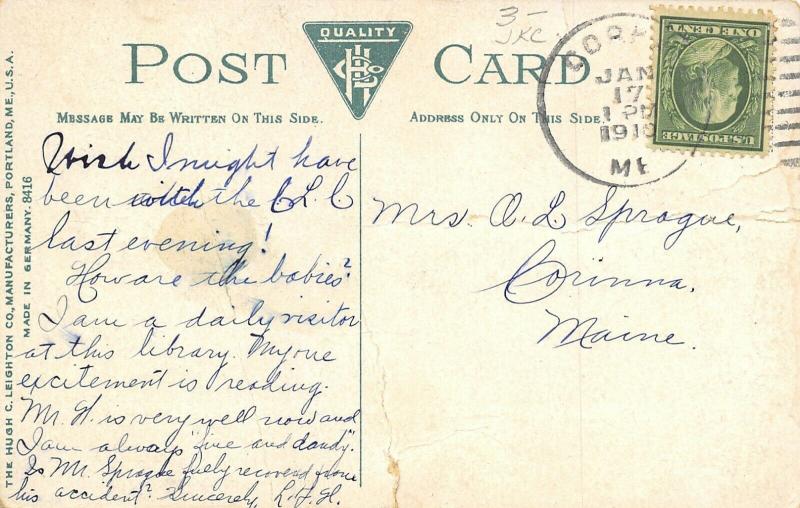 3-
JKC
QUALITY
POST CARD
MESSAGE MAY BE WRITTEN ON THIS SIDE.
ADDRESS ONLY ON THIS SIDE.
JAN
17
1 PM
1910
ME
U.S. POSTAGE
ONE CENT
THE HUGH C. LEIGHTON CO., MANUFACTURERS, PORTLAND, ME., U.S.A.
MADE IN GERMANY. 8416
Wish I might have
been with the C L C
last evening!
How are the babies?
I am a daily visitor
at this library. My one
excitement is reading.
Mr. H. is very well now and
I am always "fine and dandy".
Is Mr. Sprague fully recovered from
his accident? Sincerely, L. F. H.
Mrs. O. L. Sprague,
Corinna,
Maine.